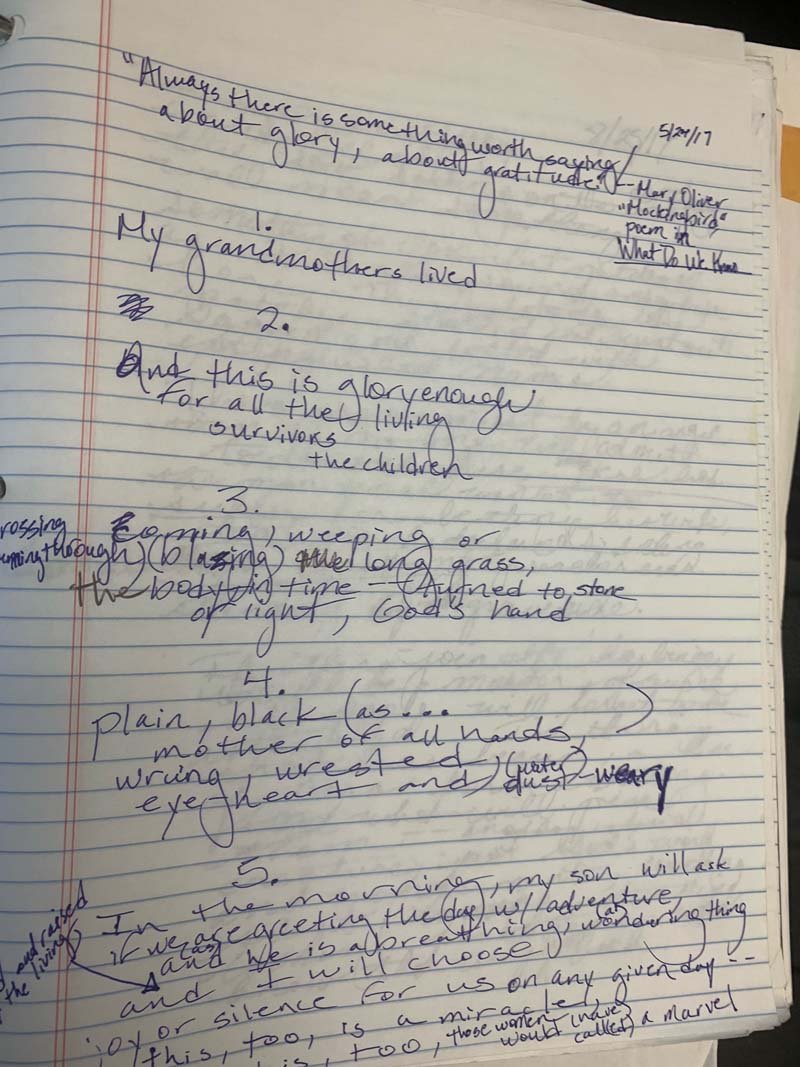 "Always there is something worth saying
about glory, about gratitude."
5/24/17
--Mary Oliver
"Mockingbird"
poem in
What Do We Know
1.
My grandmothers lived
2.
And this is glory enough
for all the living
survivors
the children
3.
rossing Coming, weeping or
through (blazing) the long grass,
the body (in) time -- turned to stone
or light, God's hand
4.
plain, black (as... )
mother of all hands,
wrung, wrested,
eye-heart and (water)
dust-weary
5.
In the morning, my son will ask
if we are greeting the day w/ adventure,
and raised
the living
and (as) he is a breathing, (as) wondering thing
and I will choose
joy or silence for us on any given day --
this, too, is a miracle,
is, too, those women would (have called) a marvel